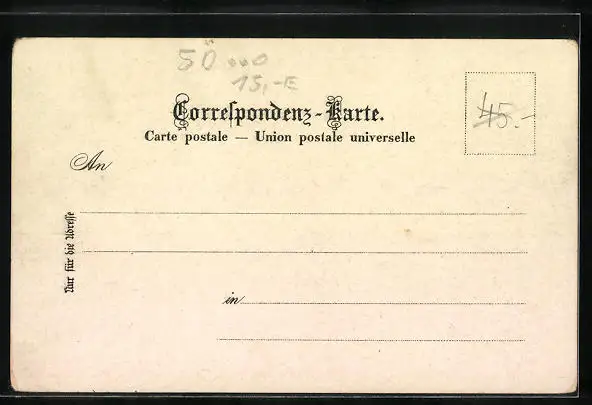 15,-E
Correspondenz-Karte.
Carte postale — Union postale universelle
45.-
An
Nur für die Adresse
in